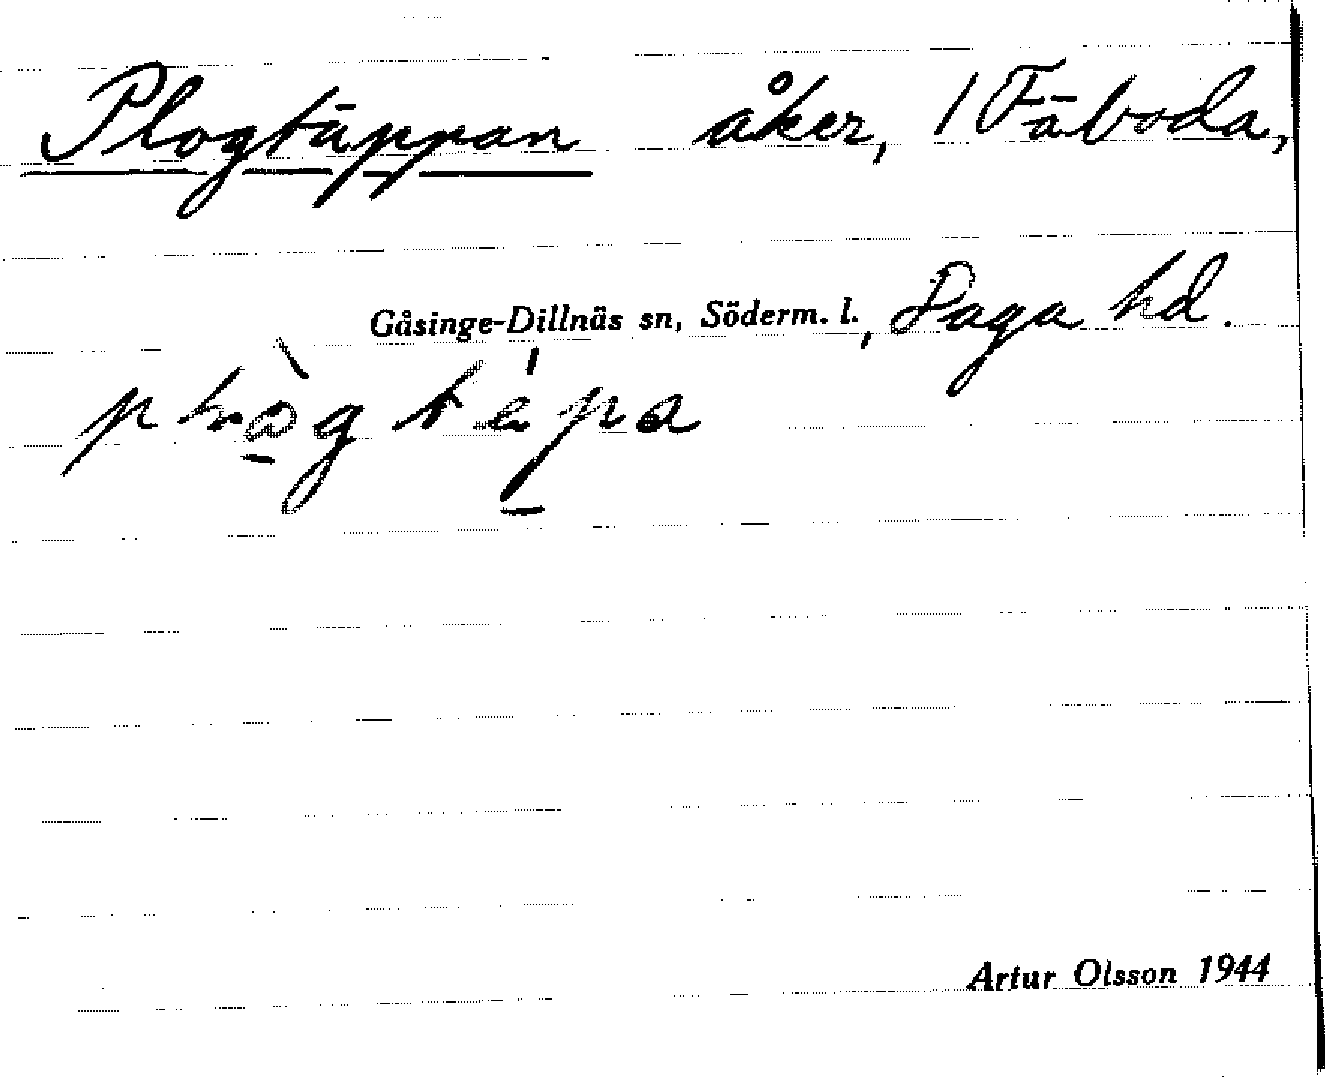 Plogtäppan åker, 1 Fäboda,
Gåsinge-Dillnäs sn, Söderm. l., Daga hd.
Artur Olsson 1944